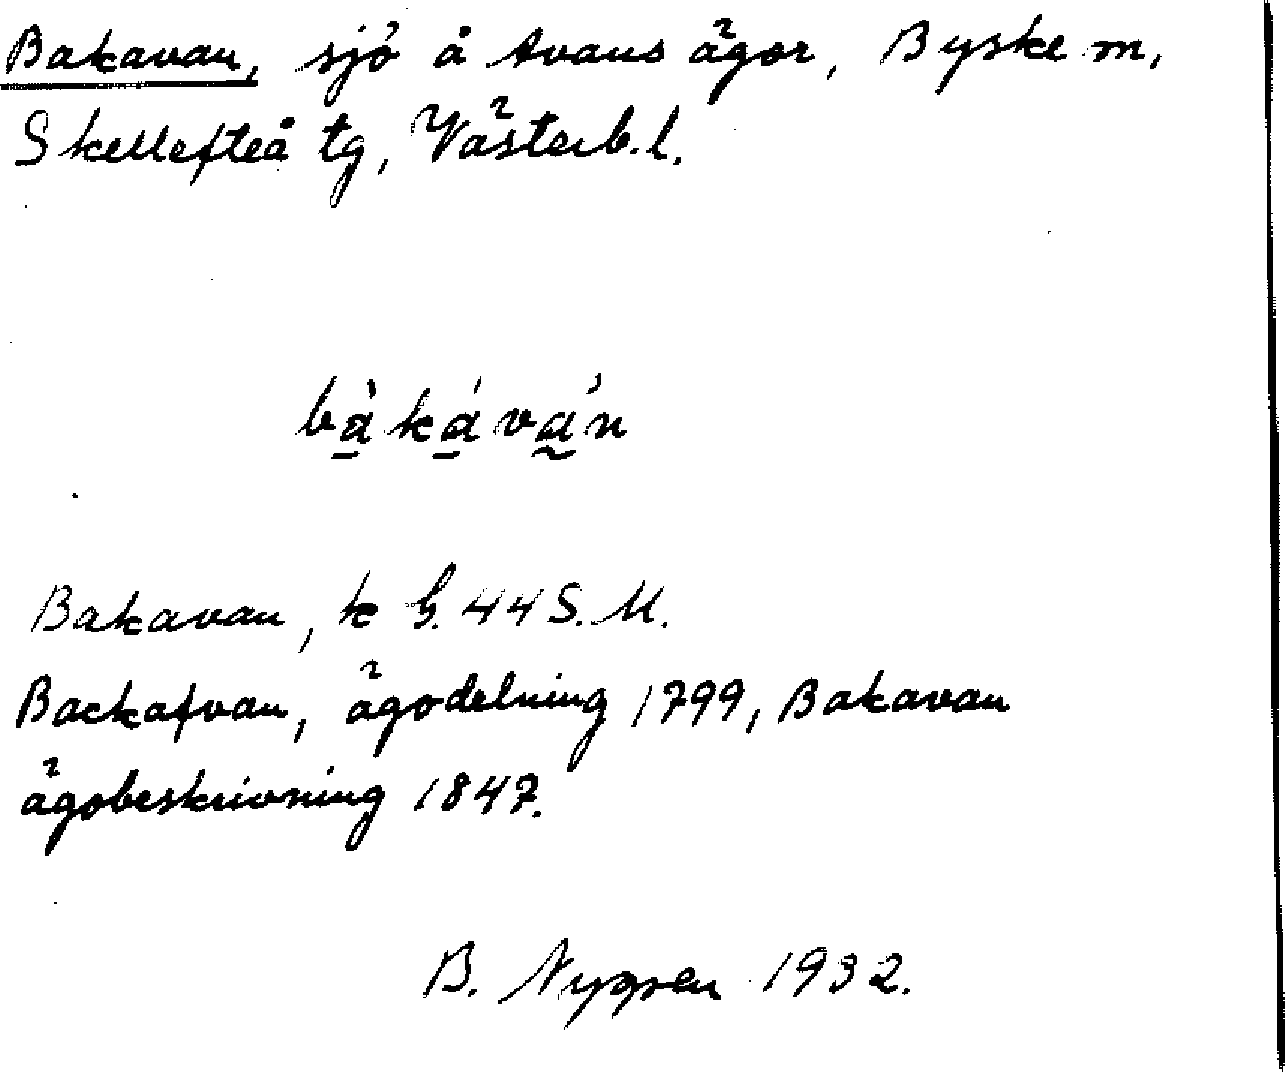 Bakavan, sjö å Avans ägor, Byske m,
Skellefteå tg, Västerb.l.
bà̱ká̱vá̰n
Bakavan, k b. 44 S.M.
Backafvan, ägodelning 1799, Bakavan
ägobeskrivning 1847.
B. Nygren 1932.